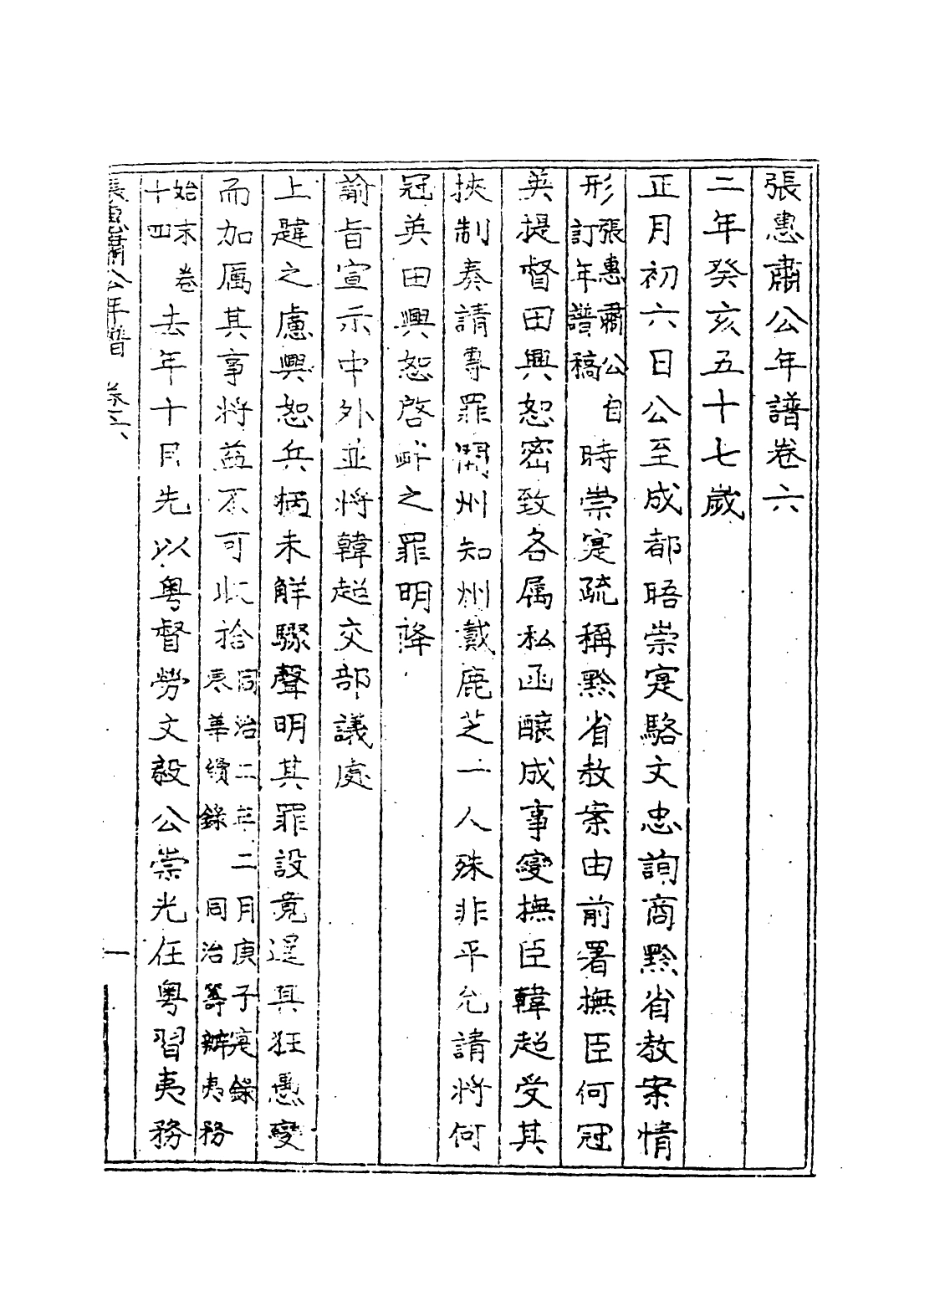 張惠肅公年譜卷六
二年癸亥五十七歲
正月初六日公至成都晤崇寔駱文忠詢商黔省教案情
形張惠肅公自訂年譜稿時崇寔疏稱黔省教案由前署撫臣何冠
英提督田興恕密致各属私函釀成事變撫臣韓超受其
挾制奏請專罪開州知州戴鹿芝一人殊非平允請將何
冠英田興恕啓衅之罪明降
諭旨宣示中外並將韓超交部議處
上韙之慮興恕兵柄未觧驟聲明其罪設竟逞其狂愚變
而加厲其事將益不可收拾同治二年二月庚子寔錄東華續錄同治籌辦夷務
始末卷十四去年十月先以粤督勞文毅公崇光任粤習夷務
張惠肅公年譜 卷六 一